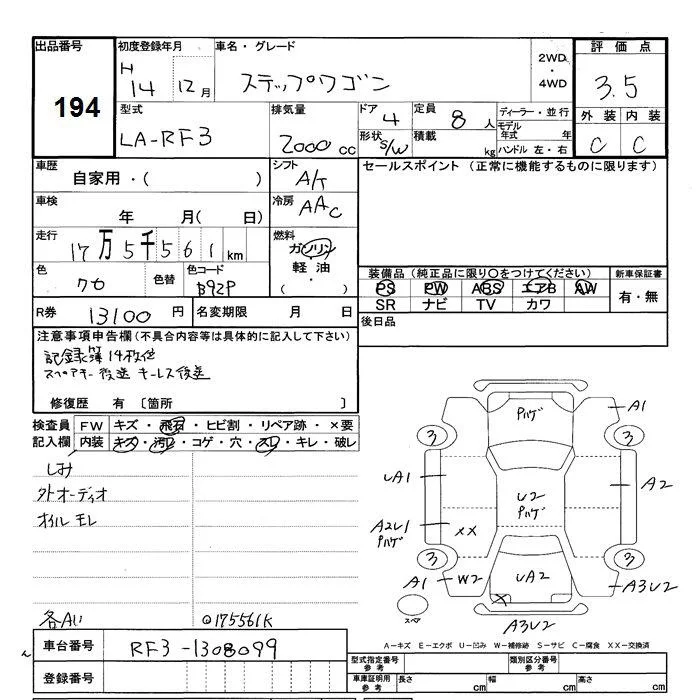 出品番号 初度登録年月 車名・グレード 2WD・4WD 評価点
194 H14 12月 ステップワゴン 3.5
型式 排気量 ドア 4 定員 8人 ディーラー・並行 外装 内装
LA-RF3 2000cc 形状 S/W 積載 kg モデル年式 年 C C
ハンドル 左・右
車歴 シフト セールスポイント (正常に機能するものに限ります)
自家用・( ) A/T
車検 冷房
年 月( 日) AAC
走行 燃料
17万5千561km ガソリン・軽油・( )
色 色替 色コード 装備品(純正品に限り○をつけてください) 新車保証書
B92P PS PW ABS エアB AW 有・無
SR ナビ TV カワ
R券 13100円 名変期限 月 日 後日品
注意事項申告欄(不具合内容等は具体的に記入して下さい)
記録簿14枚位
スペアキー後送 キーレス後送
修復歴 有 [箇所 ]
検査員 FW キズ・飛石・ヒビ割・リペア跡・×要
記入欄 内装 キズ・汚レ・コゲ・穴・スレ・キレ・破レ
シミ
外オーディオ
オイルモレ
各AU
◎175561K
パハゲ
A1
3 3
UA1 U2 A2
パハゲ
A2U1 XX
パハゲ
3 3
A1 W2 UA2 A3U2
X
スペア A3U2
A-キズ E-エクボ U-凹み W-補修跡 S-サビ C-腐食 XX-交換済
車台番号 RF3-1308099
登録番号
型式指定番号 参考 類別区分番号 参考
車庫証明用 参考 長さ cm 幅 cm 高さ cm